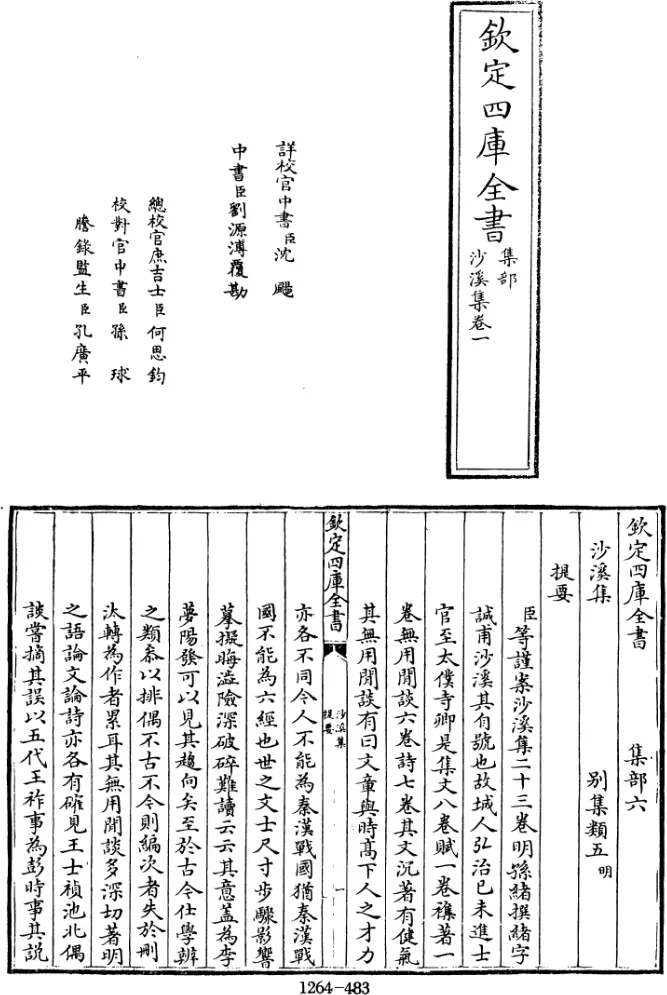 欽定四庫全書
集部
沙溪集卷一
詳校官中書臣沈颺
中書臣劉源溥覆勘
總校官庶吉士臣何思鈞
校對官中書臣孫球
謄錄監生臣孔廣平
欽定四庫全書 集部六
沙溪集 別集類五 明
提要
臣等謹案沙溪集二十三卷明孫緒撰緒字
誠甫沙溪其自號也故城人弘治己未進士
官至太僕寺卿是集文八卷賦一卷雜著一
卷無用閒談六卷詩七卷其文沉著有健氣
其無用閒談有曰文章與時髙下人之才力
欽定四庫全書
沙溪集
提要
一
亦各不同今人不能為秦漢戰國猶秦漢戰
國不能為六經也世之文士尺寸步驟影響
摹擬晦澁險深破碎難讀云云其意盖為李
夢陽發可以見其趨向矣至於古今仕學辨
之類叅以排偶不古不今則編次者失於刪
汰轉為作者累耳其無用閒談多深切著明
之語論文論詩亦各有確見王士禎池北偶
談嘗摘其誤以五代王祚事為彭時事其説
1264-483